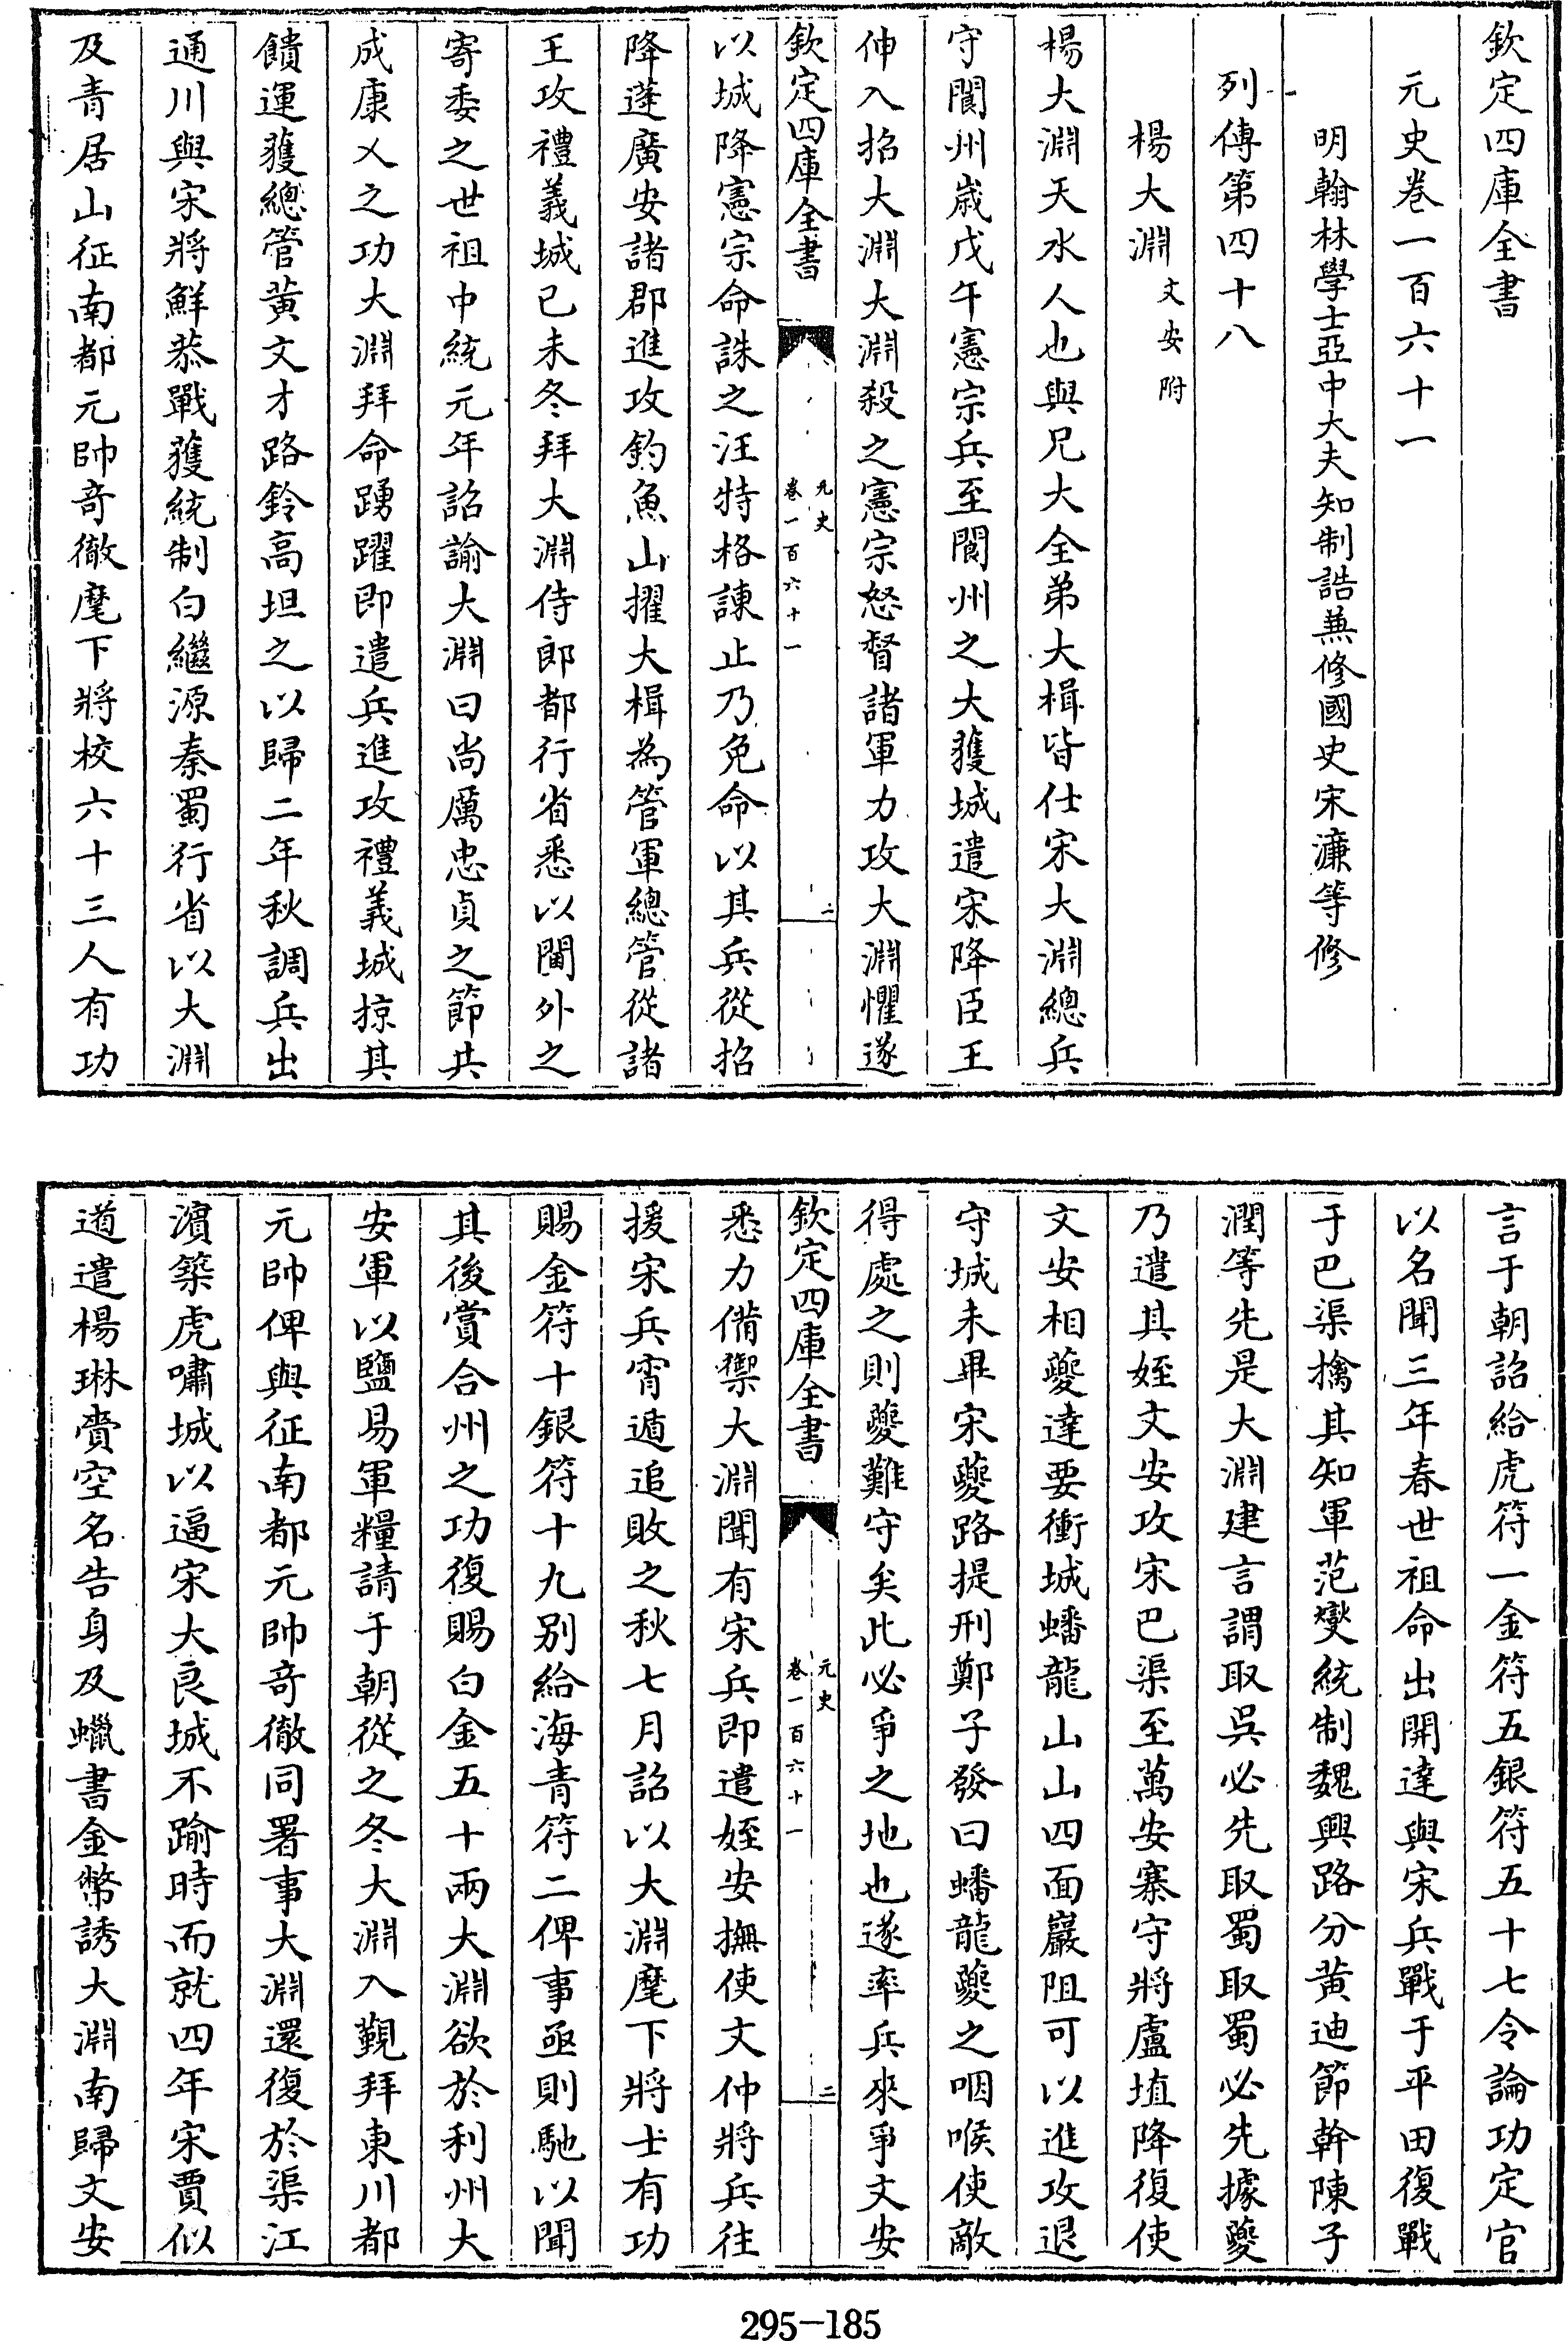 欽定四庫全書
元史卷一百六十一
明翰林學士亞中大夫知制誥兼修國史宋濂等修
列傳第四十八
楊大淵文安附
楊大淵天水人也與兄大全弟大楫皆仕宋大淵總兵
守閬州歲戊午憲宗兵至閬州之大獲城遣宋降臣王
伸入招大淵大淵殺之憲宗怒督諸軍力攻大淵懼遂
欽定四庫全書
元史
卷一百六十一
二
以城降憲宗命誅之汪特格諫止乃免命以其兵從招
降蓬廣安諸郡進攻釣魚山擢大楫為管軍總管從諸
王攻禮義城已未冬拜大淵侍郎都行省悉以閫外之
寄委之世祖中統元年詔諭大淵曰尚厲忠貞之節共
成康乂之功大淵拜命踴躍即遣兵進攻禮義城掠其
饋運獲總管黄文才路鈐高坦之以歸二年秋調兵出
通川與宋將鮮恭戰獲統制白繼源秦蜀行省以大淵
及青居山征南都元帥奇徹麾下將校六十三人有功
言于朝詔給虎符一金符五銀符五十七令論功定官
以名聞三年春世祖命出開達與宋兵戰于平田復戰
于巴渠擒其知軍范爕統制魏興路分黄迪節幹陳子
潤等先是大淵建言謂取吳必先取蜀取蜀必先據夔
乃遣其姪文安攻宋巴渠至萬安寨守將盧埴降復使
文安相夔達要衝城蟠龍山山四面巖阻可以進攻退
守城未畢宋夔路提刑鄭子發曰蟠龍夔之咽喉使敵
得處之則夔難守矣此必爭之地也遂率兵來爭文安
欽定四庫全書
元史
卷一百六十一
二
悉力備禦大淵聞有宋兵即遣姪安撫使文仲將兵往
援宋兵宵遁追敗之秋七月詔以大淵麾下將士有功
賜金符十銀符十九别給海青符二俾事亟則馳以聞
其後賞合州之功復賜白金五十兩大淵欲於利州大
安軍以鹽易軍糧請于朝從之冬大淵入覲拜東川都
元帥俾與征南都元帥奇徹同署事大淵還復於渠江
濵築虎嘯城以逼宋大良城不踰時而就四年宋賈似
道遣楊琳賫空名告身及蠟書金幣誘大淵南歸文安
295-185